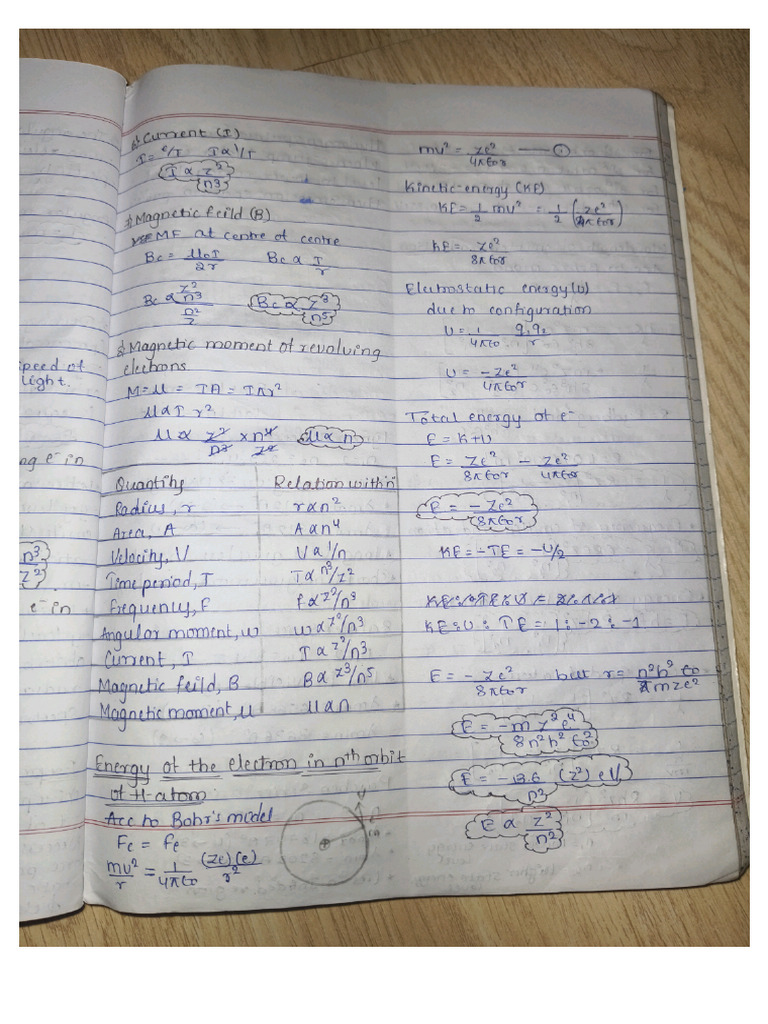 Current (I)
I = e/T I α 1/T
I α Z²/n³
Magnetic feild (B)
MF at centre of centre
Bc = μ₀I/2r Bc α I/r
Bc α (Z²/n³)/(n²/Z) Bc α Z³/n⁵
Magnetic moment of revolving
electrons
M = μ = IA = Iπr²
μ α I r²
μ α Z²/n³ × n⁴/Z² μ α n
Quantity Relation with n
Radius, r r α n²
Area, A A α n⁴
Velocity, V V α 1/n
Time period, T T α n³/z²
frequency, F f α z²/n³
Angular moment, w w α z²/n³
Current, I I α z²/n³
Magnetic feild, B B α z³/n⁵
Magnetic moment, μ μ α n
Energy of the electron in nth orbit
of H-atom
Acc to Bohr's model
Fc = Fe
mv²/r = 1/4πε₀ (Ze)(e)/r²
V
e
peed of
light.
ng e⁻ in
n³
Z²
e⁻ in
mv² = Ze²/4πε₀r —— ①
Kinetic-energy (KE)
KE = 1/2 mv² = 1/2 (Ze²/4πε₀r)
KE = Ze²/8πε₀r
Electrostatic energy (U)
due to configuration
U = 1/4πε₀ q₁q₂/r
U = -Ze²/4πε₀r
Total energy of e⁻
E = K+U
E = Ze²/8πε₀r - Ze²/4πε₀r
E = -Ze²/8πε₀r
KE = -TE = -U/2
KE : U : TE = 1 : -2 : -1
E = - Ze²/8πε₀r but r = n²h²ε₀/πmze²
E = -m z²e⁴/8n²h²ε₀²
E = -13.6 (z²)/n² eV
E α Z²/n²